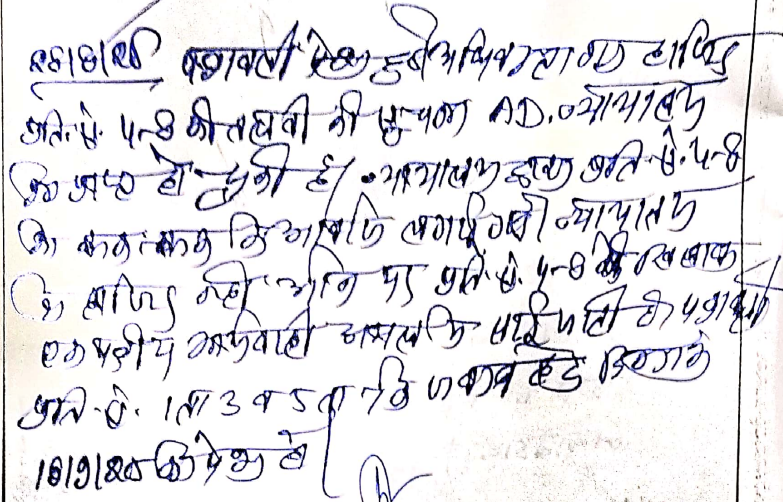 पत्रावली पेश हुई अधिवक्ता गण हाजिर
प्रति. सं. 4-8 की तलबी की सूचना AD. न्यायालय
को प्राप्त हो चुकी है। न्यायालय द्वारा प्रति. सं. 4-8
को बार-बार आवाज लगाई गयी न्यायालय
में हाजिर नहीं आने पर प्रति. सं. 4-8 के खिलाफ
एक पक्षीय कार्यवाही अमल में लाई जाती है पत्रावली
प्रति. सं. 1 ता 3 व 5 ता 7 के जवाब हेतु दिनांक
16/9/20 को पेश हो